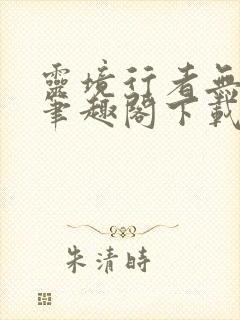 靈境行者無
筆趣閣下載
朱清時